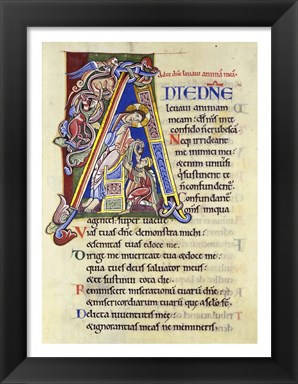 Ad te dñe levavi animā meā.
A D TE DÑE
levavi animam
meam: ds̄ m̄s int̄e
confido n̄ erubesca
Neq; irrideant
me inimici mei:
&enim univ̄si
qui sustinent te
n̄ confundentr̄.
Confundant̄
om̄s iniqua
agentes: super vacue
Vias tuas dn̄e demonstra michi:
& semitas tuas edoce me.
Dirige me in veritate tua & doce me:
quia tu es deus salvator meus:
& te sustinui tota die
Reminiscere miserationū tuarū dn̄e:
& misericordiarum tuarū que a sc̄lo sē.
Delicta iuventutis mee:
& ignorantias meas ne memineris.